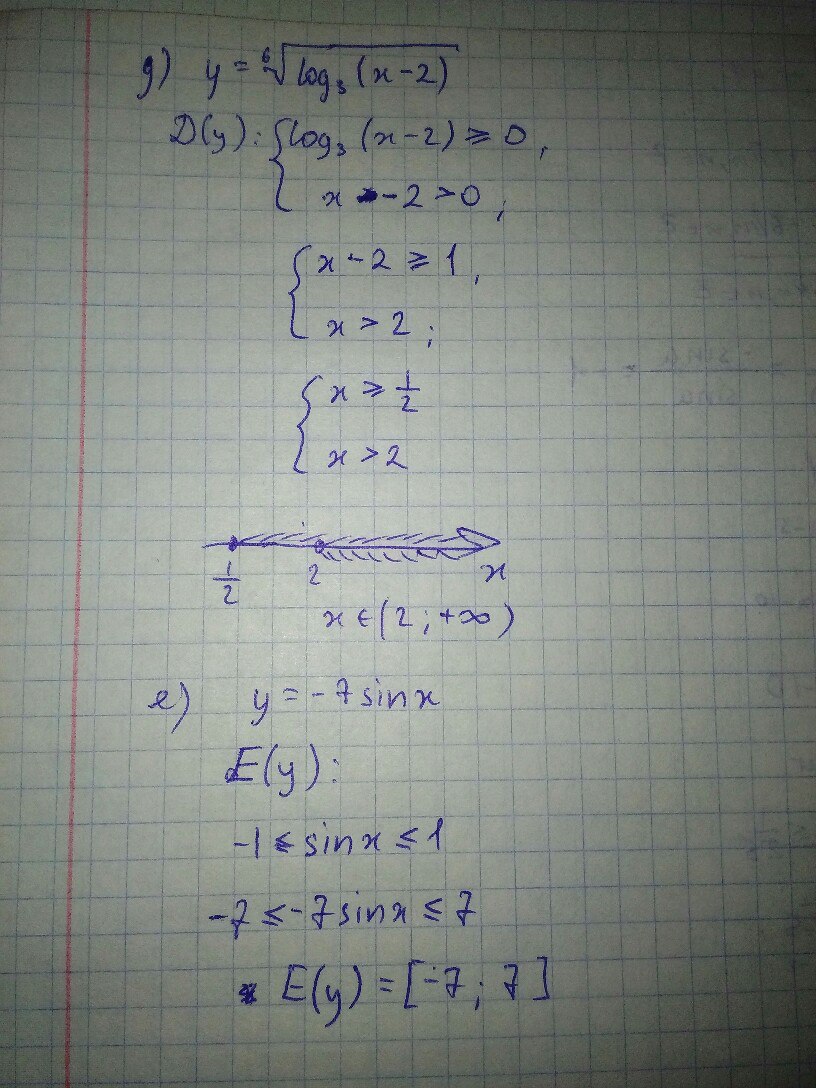 g) y = ⁶√log₃(x-2)
D(y): { log₃(x-2) ≥ 0,
x - 2 > 0;
{ x - 2 ≥ 1,
x > 2;
{ x ≥ 1/2
x > 2
1/2 2 x
x ∈ (2; +∞)
e) y = -7 sin x
E(y):
-1 ≤ sin x ≤ 1
-7 ≤ -7 sin x ≤ 7
E(y) = [-7; 7]